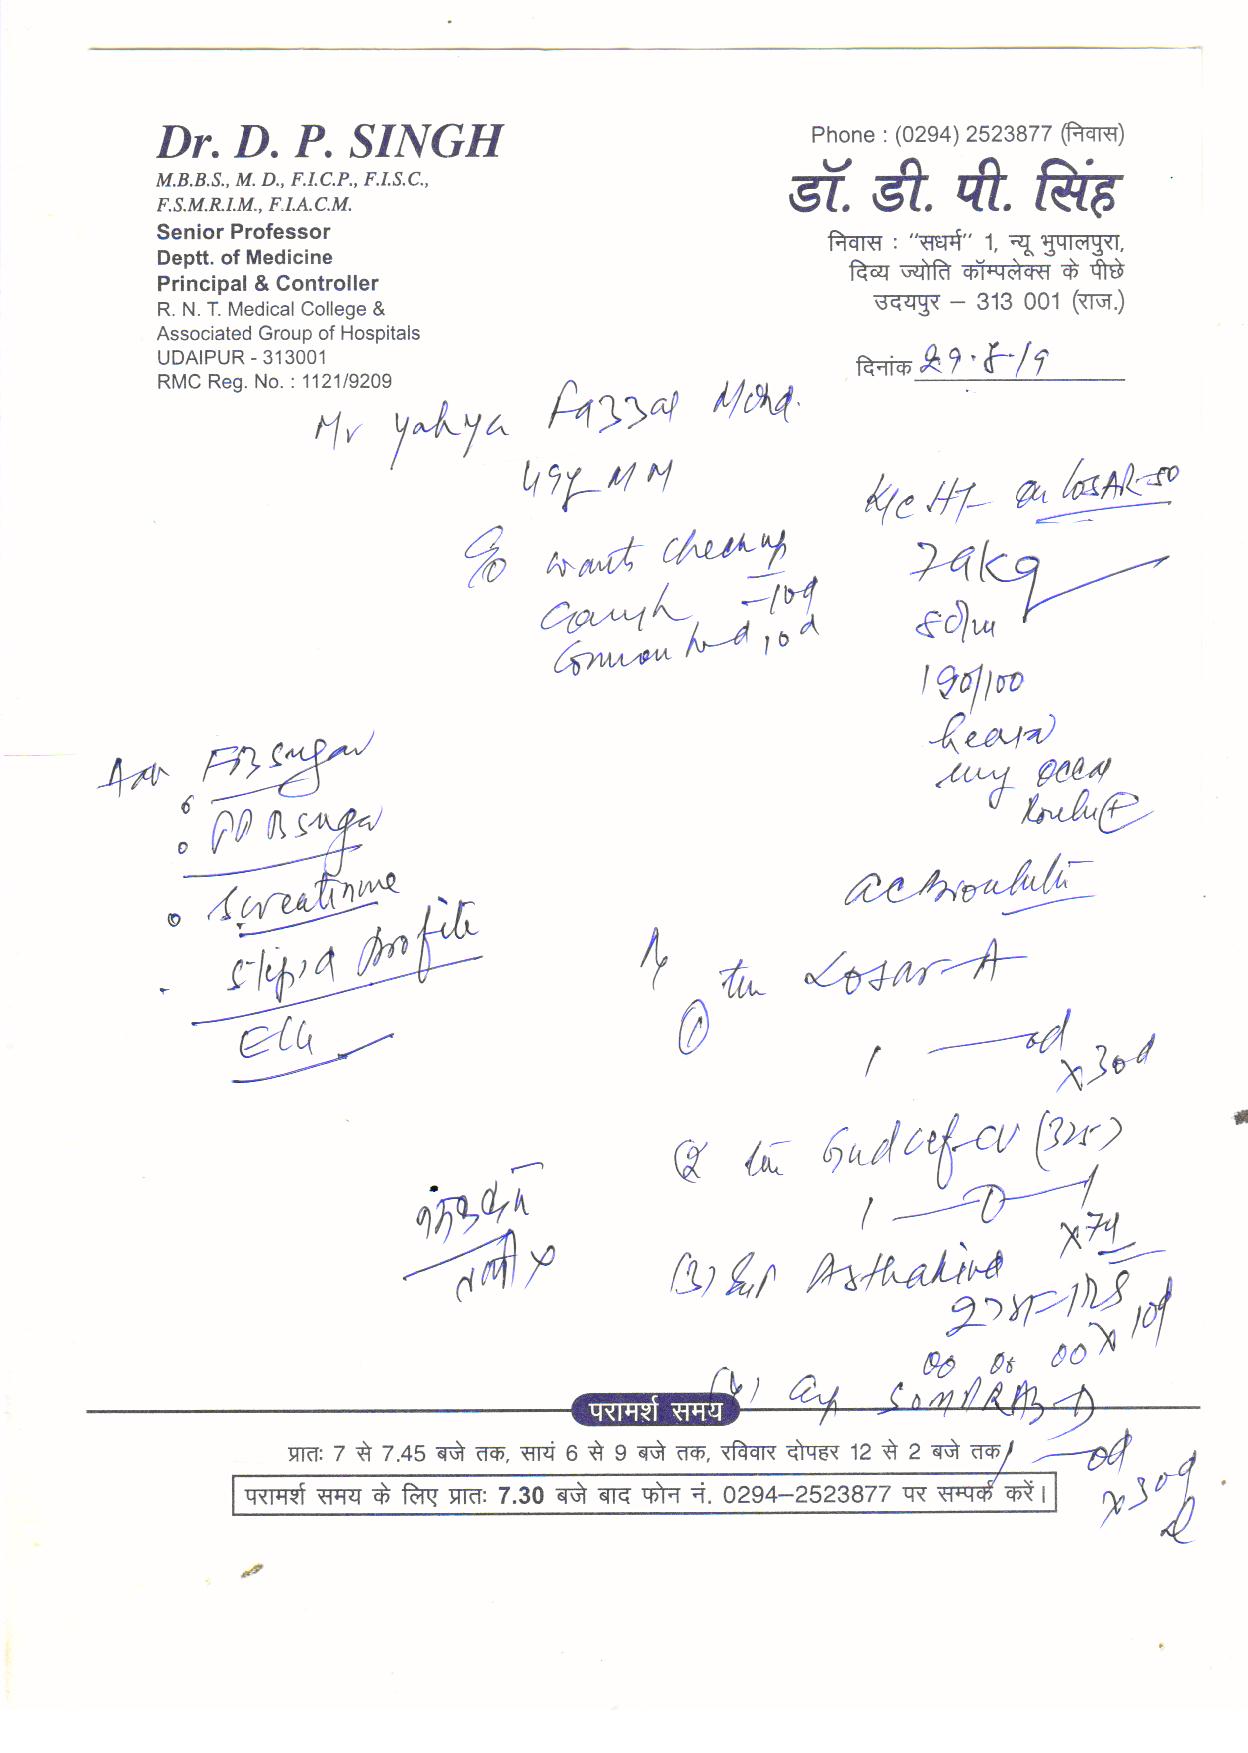 Dr. D. P. SINGH
M.B.B.S., M. D., F.I.C.P., F.I.S.C.,
F.S.M.R.I.M., F.I.A.C.M.
Senior Professor
Deptt. of Medicine
Principal & Controller
R. N. T. Medical College &
Associated Group of Hospitals
UDAIPUR - 313001
RMC Reg. No. : 1121/9209
Phone : (0294) 2523877 (निवास)
डॉ. डी. पी. सिंह
निवास : "सधर्म" 1, न्यू भुपालपुरा,
दिव्य ज्योति कॉम्पलेक्स के पीछे
उदयपुर – 313 001 (राज.)
दिनांक 29.8.19
Mr Yahya Fazzal Mohd.
49y M M
K/c HT on LOSAR-50
c/o wants checkup
cough -10d
10d
79kg
80/m
190/100
heart
lung occa
Ronchi +
ac bronchitis
Adv FBsugar
PPBsugar
S creatinine
S lipid profile
ECG
Rx
(1) tab Losar-A
1 — od
x30d
(2) tab Gudcef-CV (325)
1 — 0 — 1
x7d
(3) Syp Asthakind
x 10d
(4) cap SOMPRAZ-D
1 — od
x30d
परामर्श समय
प्रातः 7 से 7.45 बजे तक, सायं 6 से 9 बजे तक, रविवार दोपहर 12 से 2 बजे तक
परामर्श समय के लिए प्रातः 7.30 बजे बाद फोन नं. 0294–2523877 पर सम्पर्क करें।